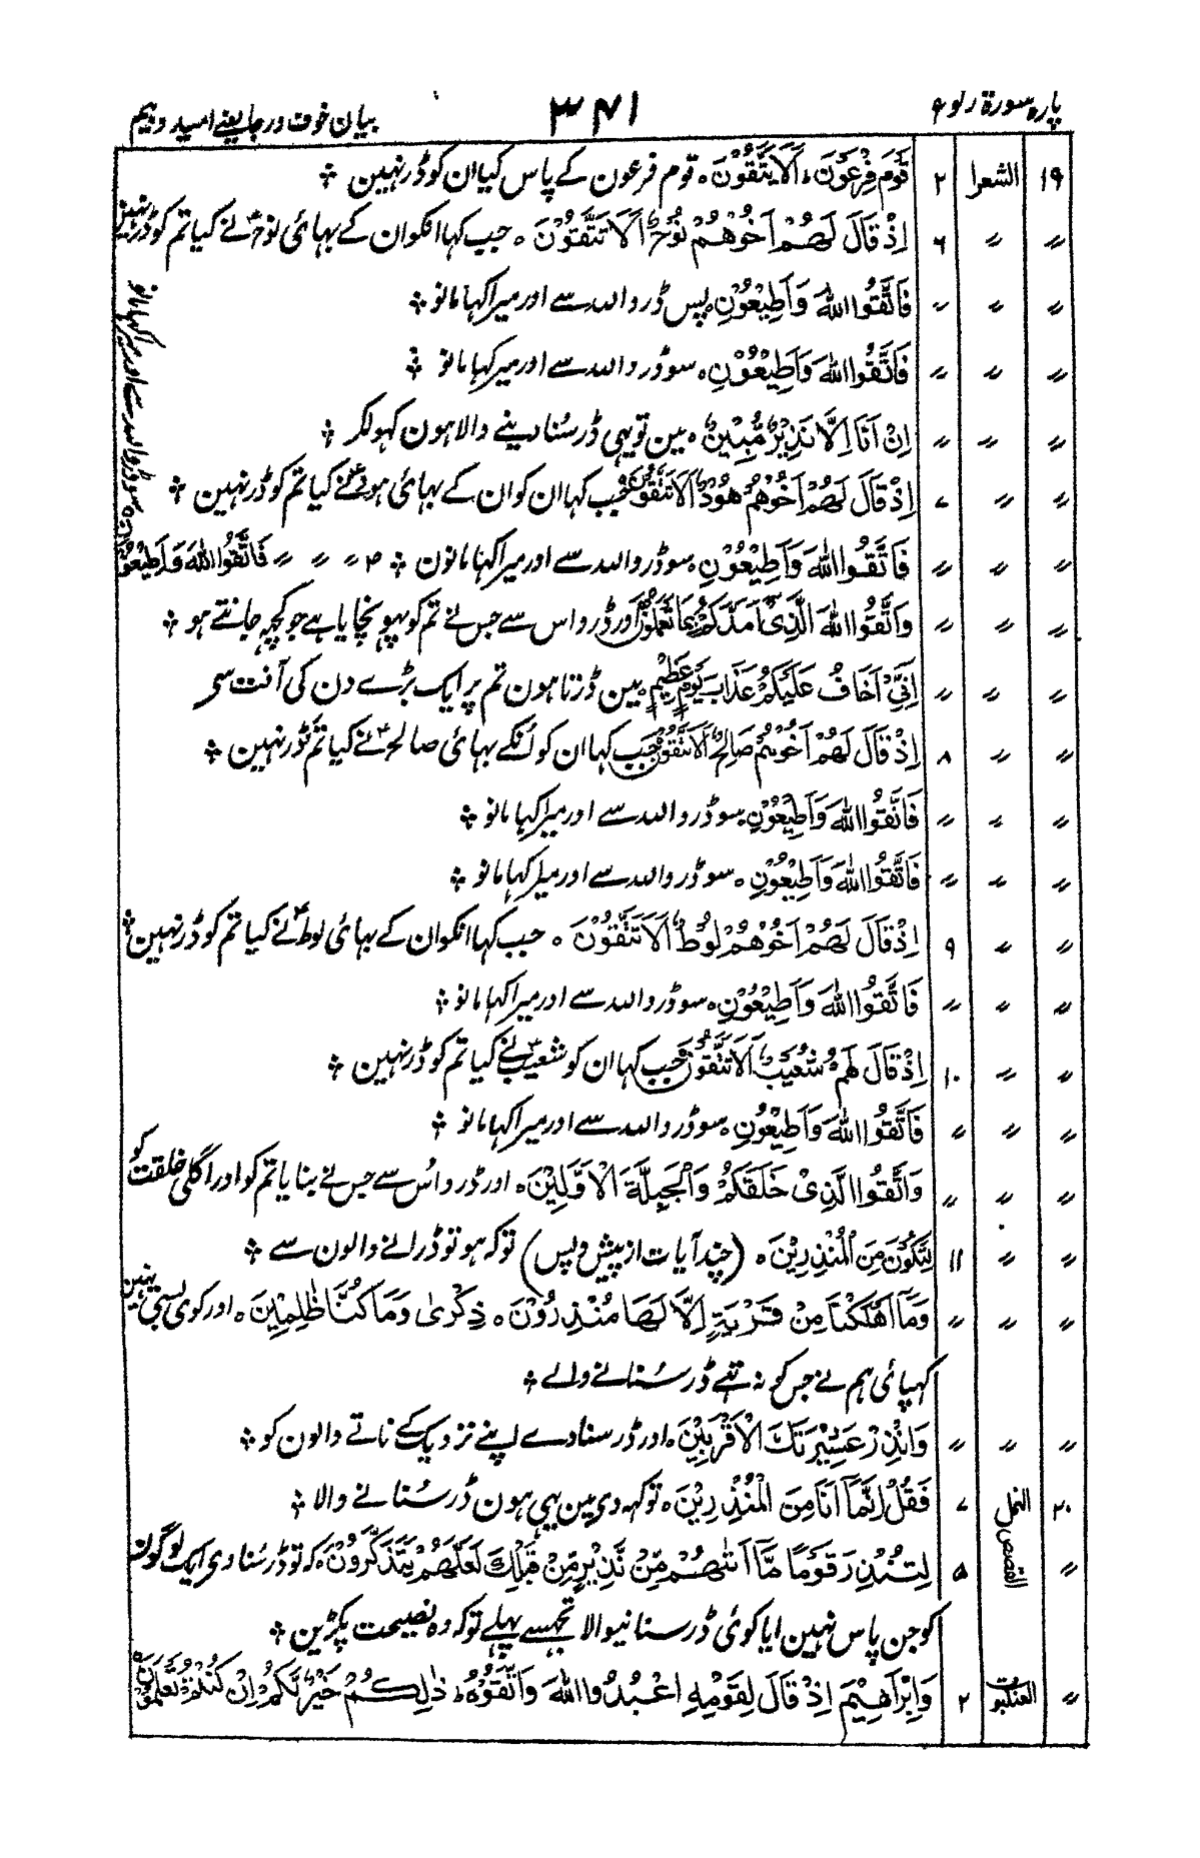 پارہ سورۃ رکوع ۳۴۱ بیان خوف و رجا یعنے امید و بیم
۱۹ الشعرا ۲ قَوْمَ فِرْعَوْنَ ؕ اَلَا یَتَّقُوْنَ ۝ قوم فرعون کے پاس کیا ان کو ڈر نہین ❖
〃 〃 ۶ اِذْ قَالَ لَھُمْ اَخُوْھُمْ نُوْحٌ اَلَا تَتَّقُوْنَ ۝ جب کہا انکو ان کے بھائی نوحؑ نے کیا تم کو ڈر نہین
〃 〃 〃 فَاتَّقُوا اللّٰہَ وَاَطِیْعُوْنِ ۝ پس ڈرو اللہ سے اور میرا کہا مانو ❖
〃 〃 〃 فَاتَّقُوا اللّٰہَ وَاَطِیْعُوْنِ ۝ سو ڈرو اللہ سے اور میرا کہا مانو ❖
〃 〃 〃 اِنْ اَنَا اِلَّا نَذِیْرٌ مُّبِیْنٌ ۝ مین تو یہی ڈر سُنا دینے والا ہون کھولکر ❖
〃 〃 ۷ اِذْ قَالَ لَھُمْ اَخُوْھُمْ ھُوْدٌ اَلَا تَتَّقُوْنَ ۝ جب کہا ان کو ان کے بھائی ہودؑ نے کیا تم کو ڈر نہین ❖
〃 〃 〃 فَاتَّقُوا اللّٰہَ وَاَطِیْعُوْنِ ۝ سو ڈرو اللہ سے اور میرا کہنا مانون ❖ ۳ 〃 〃 〃 فَاتَّقُوا اللّٰہَ وَاَطِیْعُوْنِ ۝ سو ڈرو اللہ سے اور میرا کہا مانو
〃 〃 〃 وَاتَّقُوا اللّٰہَ الَّذِیْ اَمَدَّکُمْ بِمَا تَعْلَمُوْنَ ۝ اور ڈرو اس سے جس نے تم کو پہونچایا ہے جو کچھ جانتے ہو ❖
〃 〃 〃 اِنِّیْ اَخَافُ عَلَیْکُمْ عَذَابَ یَوْمٍ عَظِیْمٍ ۝ مین ڈرتا ہون تم پر ایک بڑے دن کی آفت سی
〃 〃 ۸ اِذْ قَالَ لَھُمْ اَخُوْھُمْ صَالِحٌ اَلَا تَتَّقُوْنَ ۝ جب کہا ان کو اُنکے بھائی صالحؑ نے کیا تم ڈر نہین ❖
〃 〃 〃 فَاتَّقُوا اللّٰہَ وَاَطِیْعُوْنِ ۝ سو ڈرو اللہ سے اور میرا کہا مانو ❖
〃 〃 〃 فَاتَّقُوا اللّٰہَ وَاَطِیْعُوْنِ ۝ سو ڈرو اللہ سے اور میرا کہا مانو ❖
〃 〃 ۹ اِذْ قَالَ لَھُمْ اَخُوْھُمْ لُوْطٌ اَلَا تَتَّقُوْنَ ۝ جب کہا انکو ان کے بھائی لوطؑ نے کیا تم کو ڈر نہین ❖
〃 〃 〃 فَاتَّقُوا اللّٰہَ وَاَطِیْعُوْنِ ۝ سو ڈرو اللہ سے اور میرا کہا مانو ❖
〃 〃 ۱۰ اِذْ قَالَ لَھُمْ شُعَیْبٌ اَلَا تَتَّقُوْنَ ۝ جب کہا ان کو شعیبؑ نے کیا تم کو ڈر نہین ❖
〃 〃 〃 فَاتَّقُوا اللّٰہَ وَاَطِیْعُوْنِ ۝ سو ڈرو اللہ سے اور میرا کہا مانو ❖
〃 〃 〃 وَاتَّقُوا الَّذِیْ خَلَقَکُمْ وَالْجِبِلَّۃَ الْاَوَّلِیْنَ ۝ اور ڈرو اُس سے جس نے بنایا تم کو اور اگلی خلقت کو
〃 〃 ۱۱ لِتَکُوْنَ مِنَ الْمُنْذِرِیْنَ ۝ (چند آیات از پیش و پس) توکہ ہو تو ڈرانے والون سے ❖
〃 〃 〃 وَمَا اَھْلَکْنَا مِنْ قَرْیَۃٍ اِلَّا لَھَا مُنْذِرُوْنَ ۝ ذِکْرٰی وَمَا کُنَّا ظٰلِمِیْنَ ۝ اور کوی بستی نہین
کھپائی ہم نے جس کو نہ تھے ڈر سُنانے والے ❖
〃 〃 〃 وَاَنْذِرْ عَشِیْرَتَکَ الْاَقْرَبِیْنَ ۝ اور ڈر سنادے اپنے نزدیک کے ناتے والون کو ❖
۲۰ النمل ۷ فَقُلْ اِنَّمَا اَنَا مِنَ الْمُنْذِرِیْنَ ۝ تو کہہ دی مین یہی ہون ڈر سُنانے والا ❖
〃 القصص ۵ لِتُنْذِرَ قَوْمًا مَّا اَتٰھُمْ مِّنْ نَّذِیْرٍ مِّنْ قَبْلِکَ لَعَلَّھُمْ یَتَذَکَّرُوْنَ ۝ کہ تو ڈر سُنا دی ایک لوگون
کو جن پاس نہین ایا کوئی ڈر سنانیوالا تجھسے پہلے توکہ وہ نصیحت پکڑین ❖
〃 العنکبوت ۲ وَاِبْرَاھِیْمَ اِذْ قَالَ لِقَوْمِہِ اعْبُدُوا اللّٰہَ وَاتَّقُوْہُ ؕ ذٰلِکُمْ خَیْرٌ لَّکُمْ اِنْ کُنْتُمْ تَعْلَمُوْنَ